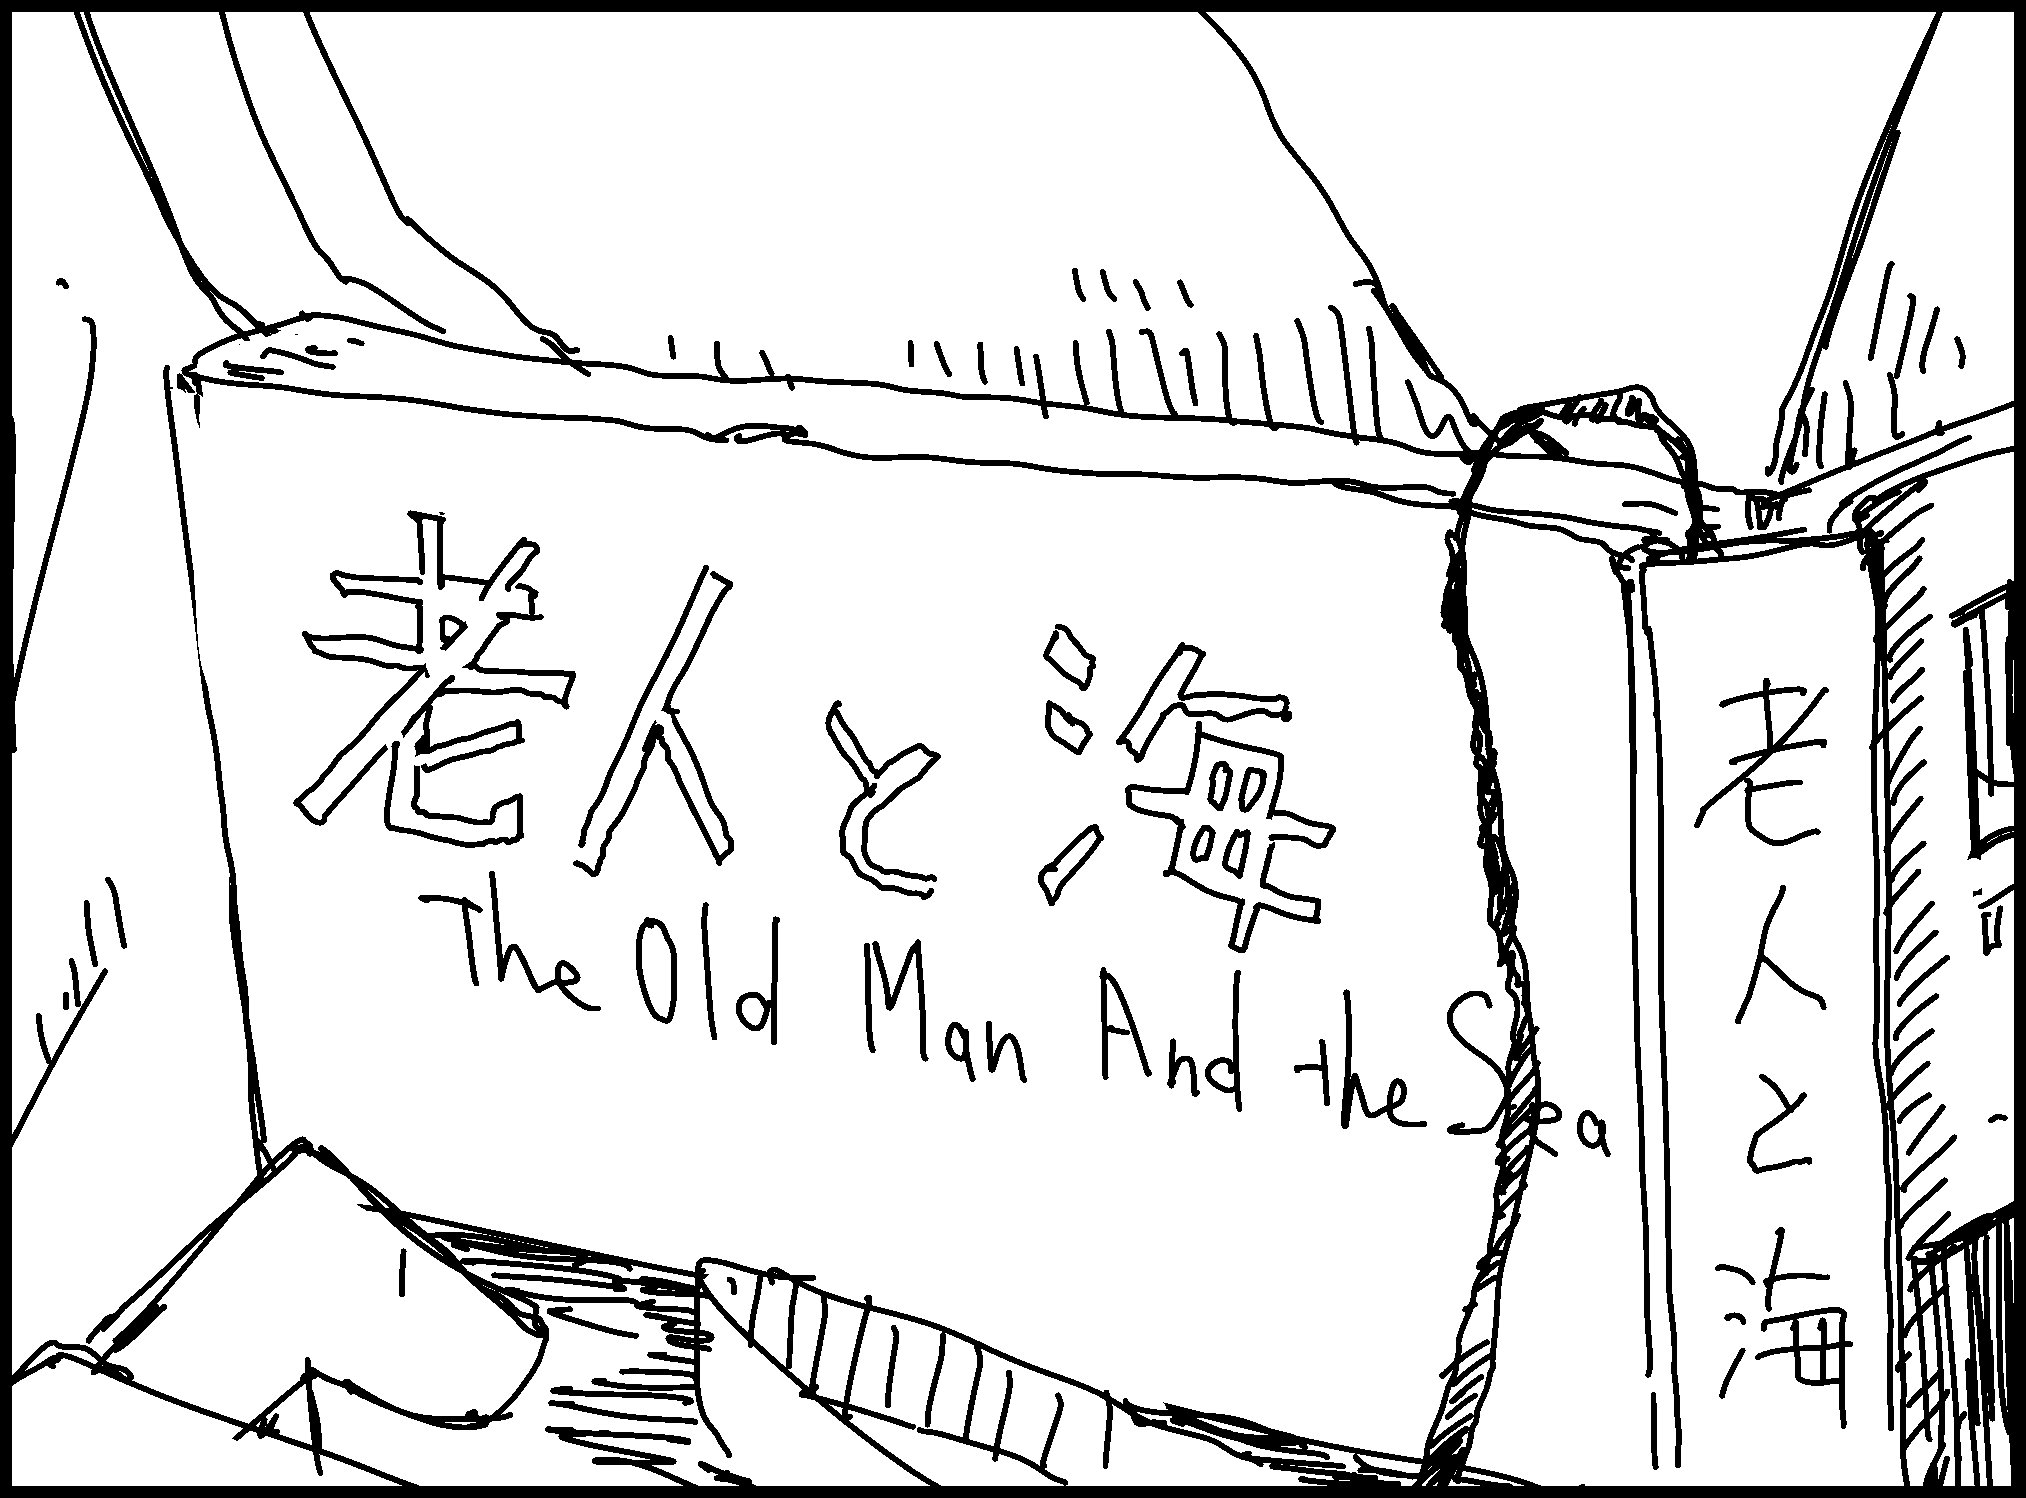 老人と海
The Old Man And the Sea
老人と海